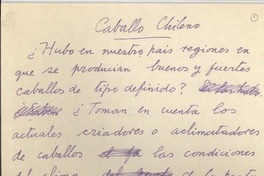 Caballo Chileno
¿Hubo en nuestro pais regiones en
que se producian buenos y fuertes
caballos de tipo definido?
¿Toman en cuenta los
actuales criadores o aclimentadores
de caballos las condiciones